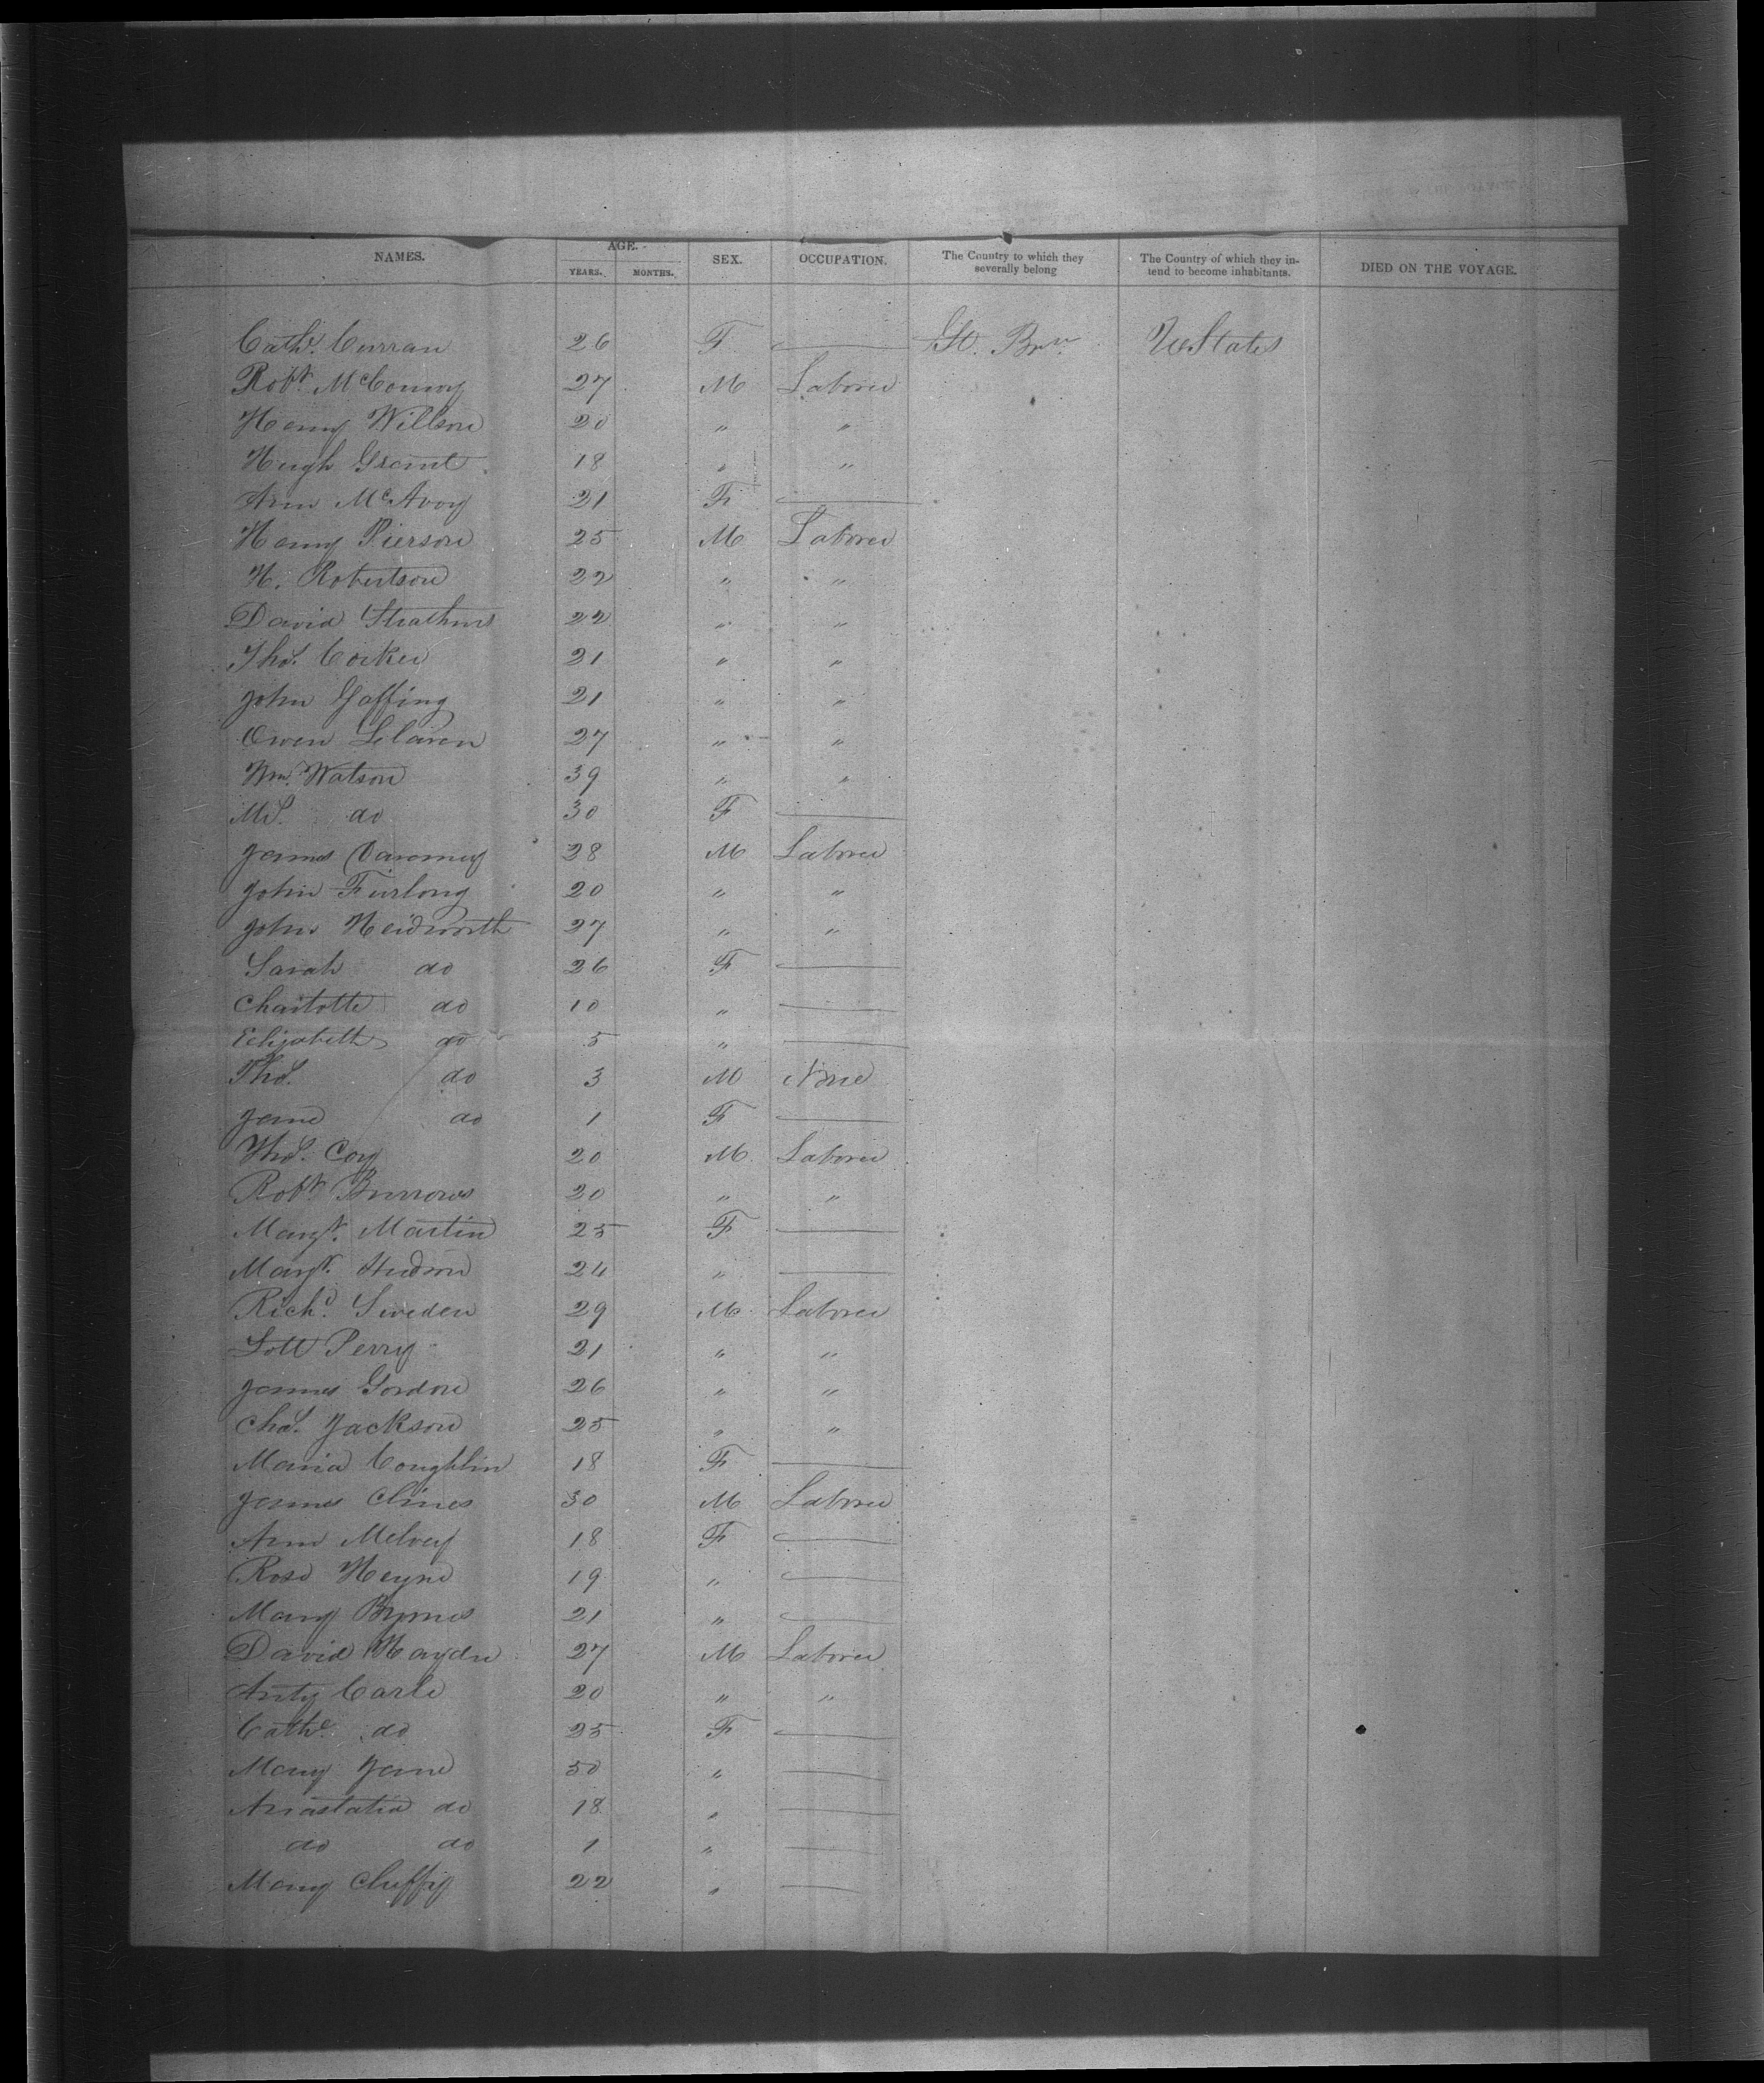 NAMES. AGE. SEX. OCCUPATION. The Country to which they severally belong The Country of which they intend to become inhabitants. DIED ON THE VOYAGE.
YEARS. MONTHS.
Cathe. Curran 26 F — Gt. Brn UStates
Robt. McConvoy 27 M Laborer
Henry Willson 20 " "
Hugh Grant 18 " "
Ann McAvoy 21 F —
Henry Pierson 25 M Laborer
H. Robertson 22 " "
David 22 " "
Thos. Corker 21 " "
John Gaffing 21 " "
Owen 27 " "
Wm. Watson 39 " "
Ms. do 30 F —
James 28 M Laborer
John Furlong 20 " "
John Heidworth 27 " "
Sarah do 26 F —
Charlotte do 10 " —
Elizabeth do 5 " —
Thos. do 3 M None
Jane do 1 F —
Thos. Coy 20 M Laborer
Robt. Burrows 20 " "
Margt. Martin 25 F —
Margt. Hudson 24 " —
Richd. Sweden 29 M Laborer
Lott Perry 21 " "
James Gordon 26 " "
Chas. Jackson 25 " "
Maria Coughlin 18 F —
James Clines 30 M Laborer
Ann Melvey 18 F —
Rose Heyne 19 " —
Mary Byrnes 21 " —
David Haydn 27 M Laborer
Anty Carle 20 " "
Cathe. do 25 F —
Mary Jane 50 " —
Anastatia do 18 " —
do do 1 " —
Mary Cluffy 22 " —